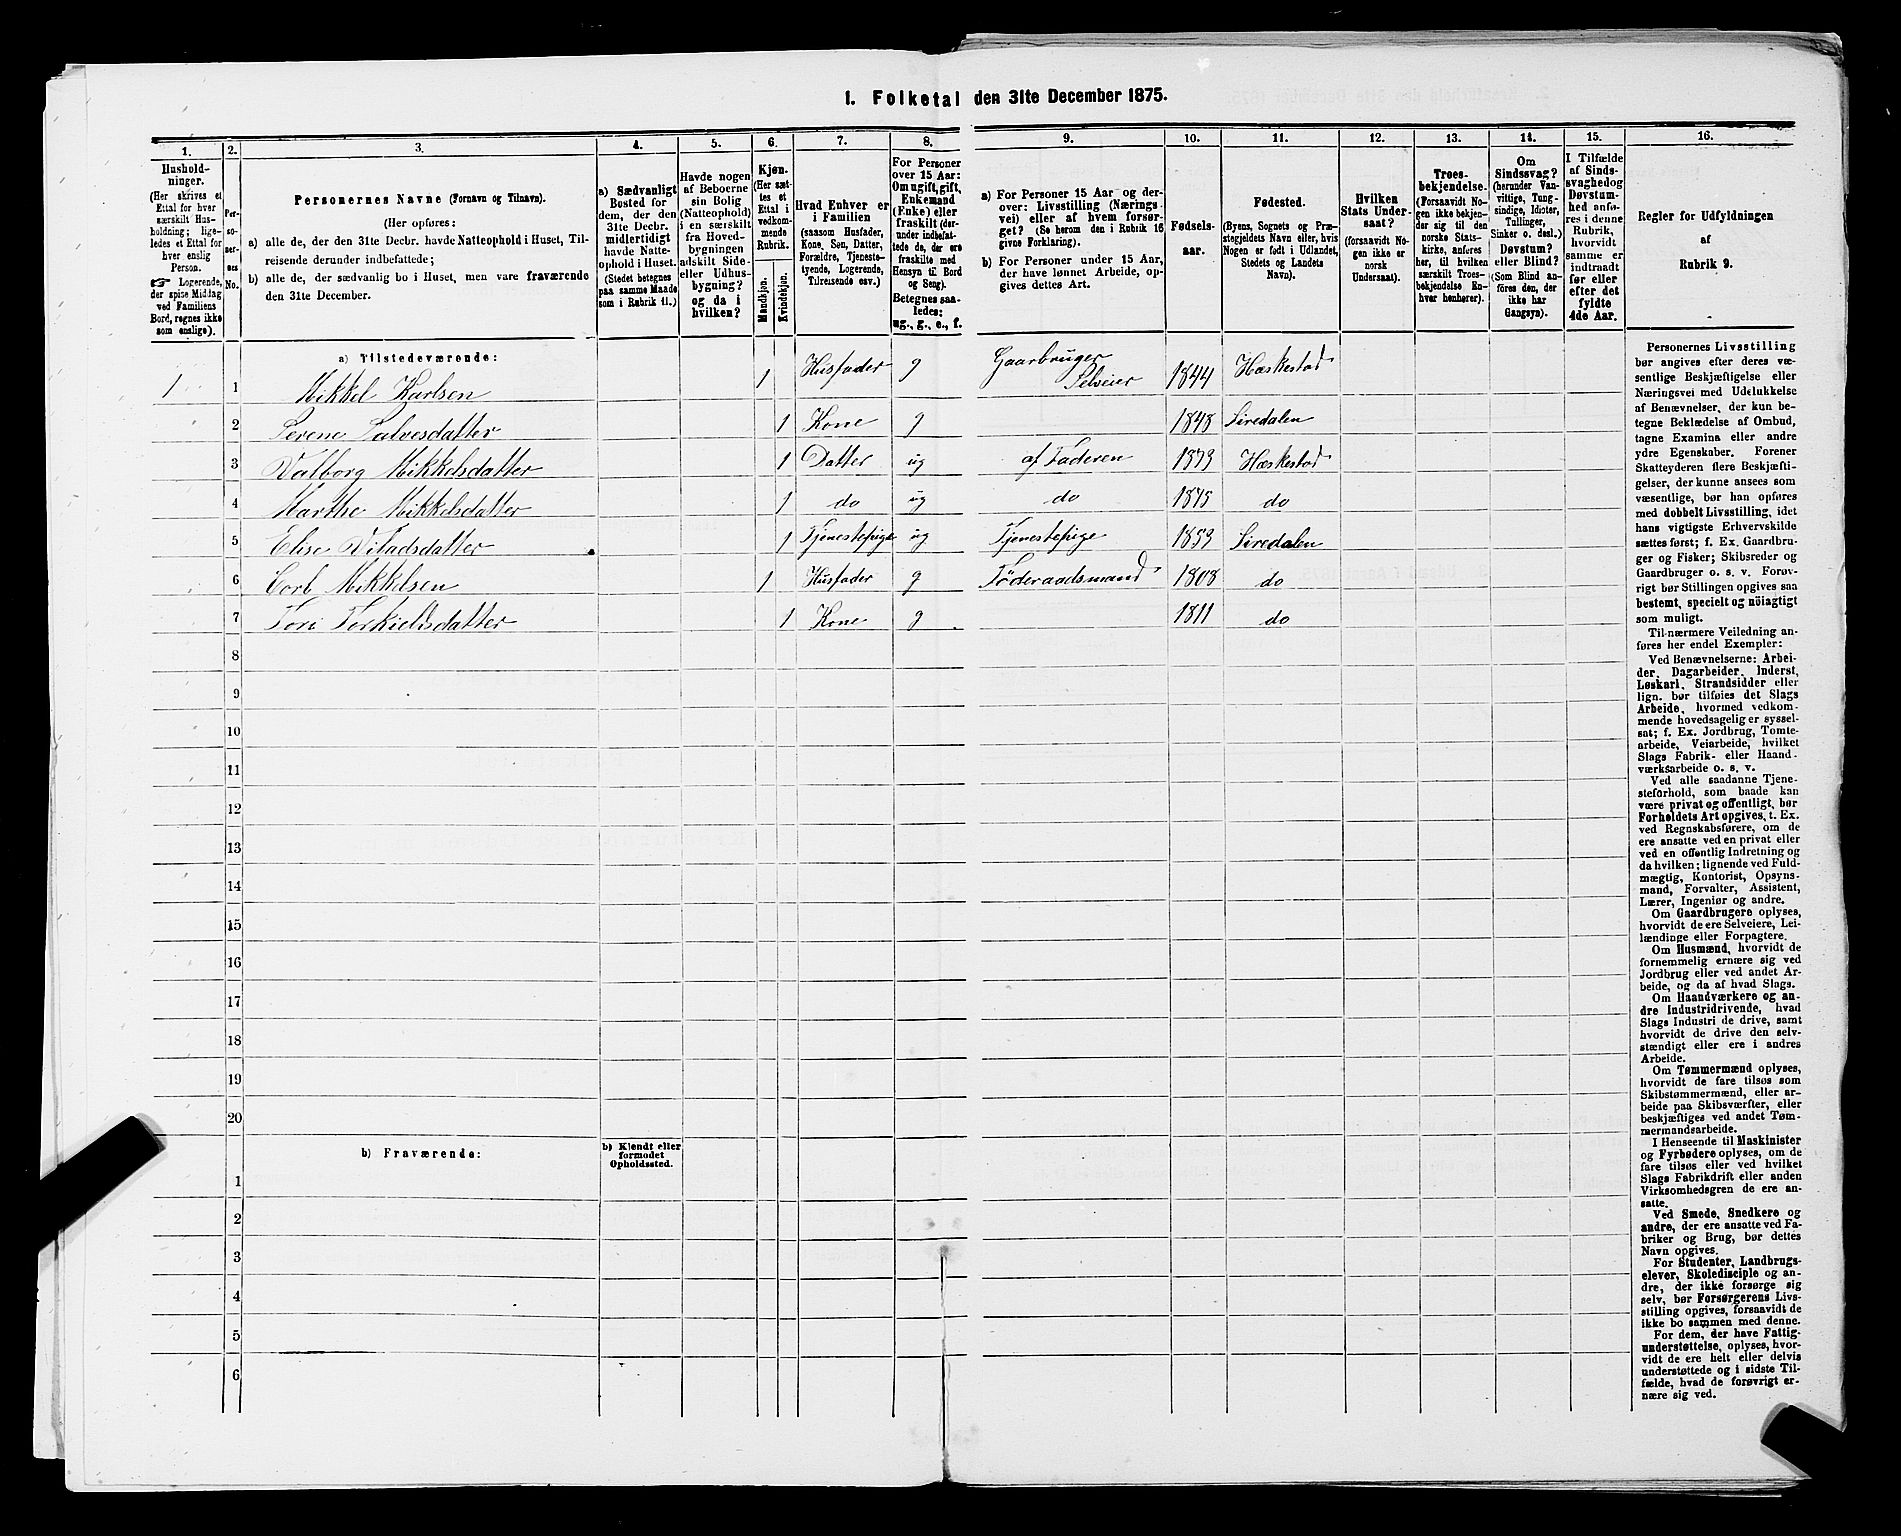 1. Folketal den 31te December 1875.
1. 2. 3. 4. 5. 6. 7. 8. 9. 10. 11. 12. 13. 14. 15. 16.
Hushold-
ninger.
(Her skrives et
Ettal for hver
særskilt Hus-
holdning; lige-
ledes et Ettal for
hver enslig
Person.
☞ Logerende,
der spise Middag
ved Familiens
Bord, regnes ikke
som enslige).
Per-
so-
ner-
nes
No.
Personernes Navne (Fornavn og Tilnavn).
(Her opføres:
a) alle de, der den 31te Decbr. havde Natteophold i Huset, Til-
reisende derunder indbefattede;
b) alle de, der sædvanlig bo i Huset, men vare fraværende
den 31te December.
a) Sædvanligt
Bosted for
dem, der den
31te Decbr.
midlertidigt
havde Natte-
ophold i Huset.
(Stedet betegnes
paa samme Maade
som i Rubrik 11.)
Havde nogen
af Beboerne
sin Bolig
(Natteophold)
i en særskilt
fra Hoved-
bygningen
adskilt Side-
eller Udhus-
bygning?
og da i
hvilken?
Kjøn.
(Her sæt-
tes et
Ettal i
vedkom-
mende
Rubrik.
Mandkjøn.
Kvindekjøn.
Hvad Enhver er
i Familien
(saasom Husfader,
Kone, Søn, Datter,
Forældre, Tjeneste-
tyende, Logerende,
Tilreisende osv.)
For Personer
over 15 Aar:
Om ugift, gift,
Enkemand
(Enke) eller
fraskilt (der-
under indbefat-
tede de, der ere
fraskilte med
Hensyn til Bord
og Seng).
Betegnes saa-
ledes:
ug., g., e., f.
a) For Personer 15 Aar og der-
over: Livsstilling (Nærings-
vei) eller af hvem forsør-
get? (Se herom den i Rubrik 16
givne Forklaring).
b) For Personer under 15 Aar,
der have lønnet Arbeide, op-
gives dettes Art.
Fødsels-
aar.
Fødested.
(Byens, Sognets og Præ-
stegjeldets Navn eller, hvis
Nogen er født i Udlandet,
Stedets og Landets
Navn).
Hvilken
Stats Under-
saat?
(forsaavidt No-
gen ikke er
norsk
Undersaat).
Troes-
bekjendelse.
(Forsaavidt No-
gen ikke bekjen-
der sig til den
norske Stats-
kirke, anføres
her, til hvilken
særskilt Troes-
bekjendelse En-
hver henhører).
Om
Sindssvag?
(herunder Van-
vittige, Tung-
sindige, Idioter,
Tullinger,
Sinker o. desl.)
Døvstum?
eller Blind?
(Som Blind an-
føres den, der
ikke har
Gangsyn).
I Tilfælde
af Sinds-
svaghed og
Døvstum-
hed anfø-
res i denne
Rubrik,
hvorvidt
samme er
indtraadt
før eller
efter det
fyldte
4de Aar.
Regler for Udfyldningen
af
Rubrik 9.
a) Tilstedeværende:
1 1 Mikkel Karlsen 1 Husfader g Gaarbruger Selveier 1844 Hæskestad
2 Serene Salvesdatter 1 Kone g 1848 Siredalen
3 Valborg Mikkelsdatter 1 Datter ug af Faderen 1873 Hæskestad
4 Marthe Mikkelsdatter 1 do ug do 1875 do
5 Elise Vibadsdatter 1 Tjenestepige ug Tjenestepige 1853 Siredalen
6 Corl Mikkelsen 1 Husfader g Føderaadsmand 1808 do
7 Tori Torkieldsdatter 1 Kone g 1811 do
8
9
10
11
12
13
14
15
16
17
18
19
20
b) Fraværende:
b) Kjendt eller
formodet
Opholdssted.
1
2
3
4
5
6
Personernes Livsstilling
bør angives efter deres væ-
sentlige Beskjæftigelse eller
Næringsvei med Udelukkelse
af Benævnelser, der kun be-
tegne Beklædelse af Ombud,
tagne Examina eller andre
ydre Egenskaber. Forener
Skatteyderen flere Beskjæfti-
gelser, der kunne ansees som
væsentlige, bør han opføres
med dobbelt Livsstilling, idet
hans vigtigste Erhvervskilde
sættes først; f. Ex. Gaardbru-
ger og Fisker; Skibsreder og
Gaardbruger o. s. v. Forøv-
rigt bør Stillingen opgives saa
bestemt, specielt og nöiagtigt
som muligt.
Til nærmere Veiledning an-
føres her endel Exempler:
Ved Benævnelserne: Arbei-
der, Dagarbeider, Inderst,
Løskarl, Strandsidder eller
lign. bør tilføies det Slags
Arbeide, hvormed vedkom-
mende hovedsagelig er syssel-
sat; f. Ex. Jordbrug, Tomte-
arbeide, Veiarbeide, hvilket
Slags Fabrik- eller Haand-
værksarbeide o. s. v.
Ved alle saadanne Tjene-
steforhold, som baade kan
være privat og offentligt, bør
Forholdets Art opgives, t. Ex.
ved Regnskabsførere, om de
ere ansatte ved en privat eller
ved en offentlig Indretning og
da hvilken; lignende ved Fuld-
mægtig, Kontorist, Opsyns-
mand, Forvalter, Assistent,
Lærer, Ingeniør og andre.
Om Gaardbrugere oplyses,
hvorvidt de ere Selveiere, Lei-
lændinge eller Forpagtere.
Om Husmænd, hvorvidt de
fornemmelig ernære sig ved
Jordbrug eller ved andet Ar-
beide, og da af hvad Slags.
Om Haandværkere og an-
dre Industridrivende, hvad
Slags Industri de drive, samt
hvorvidt de drive den selv-
stændigt eller ere i andres
Arbeide.
Om Tømmermænd oplyses,
hvorvidt de fare tilsøs som
Skibstømmermænd, eller ar-
beide paa Skibsværfter, eller
beskjæftiges ved andet Tøm-
mermandsarbeide.
I Henseende til Maskinister
og Fyrbødere oplyses, om de
fare tilsøs eller ved hvilket
Slags Fabrikdrift eller anden
Virksomhedsgren de ere an-
satte.
Ved Smede, Snedkere og
andre, der ere ansatte ved Fa-
briker og Brug, bør dettes
Navn opgives.
For Studenter, Landbrugs-
elever, Skoledisciple og an-
dre, der ikke forsørge sig
selv, bør Forsørgerens Livs-
stilling opgives, forsaavidt de
ikke bo sammen med denne.
For dem, der have Fattig-
understøttelse, oplyses, hvor-
vidt de ere helt eller delvis
understøttede og i sidste Til-
fælde, hvad de forøvrigt er-
nære sig ved.